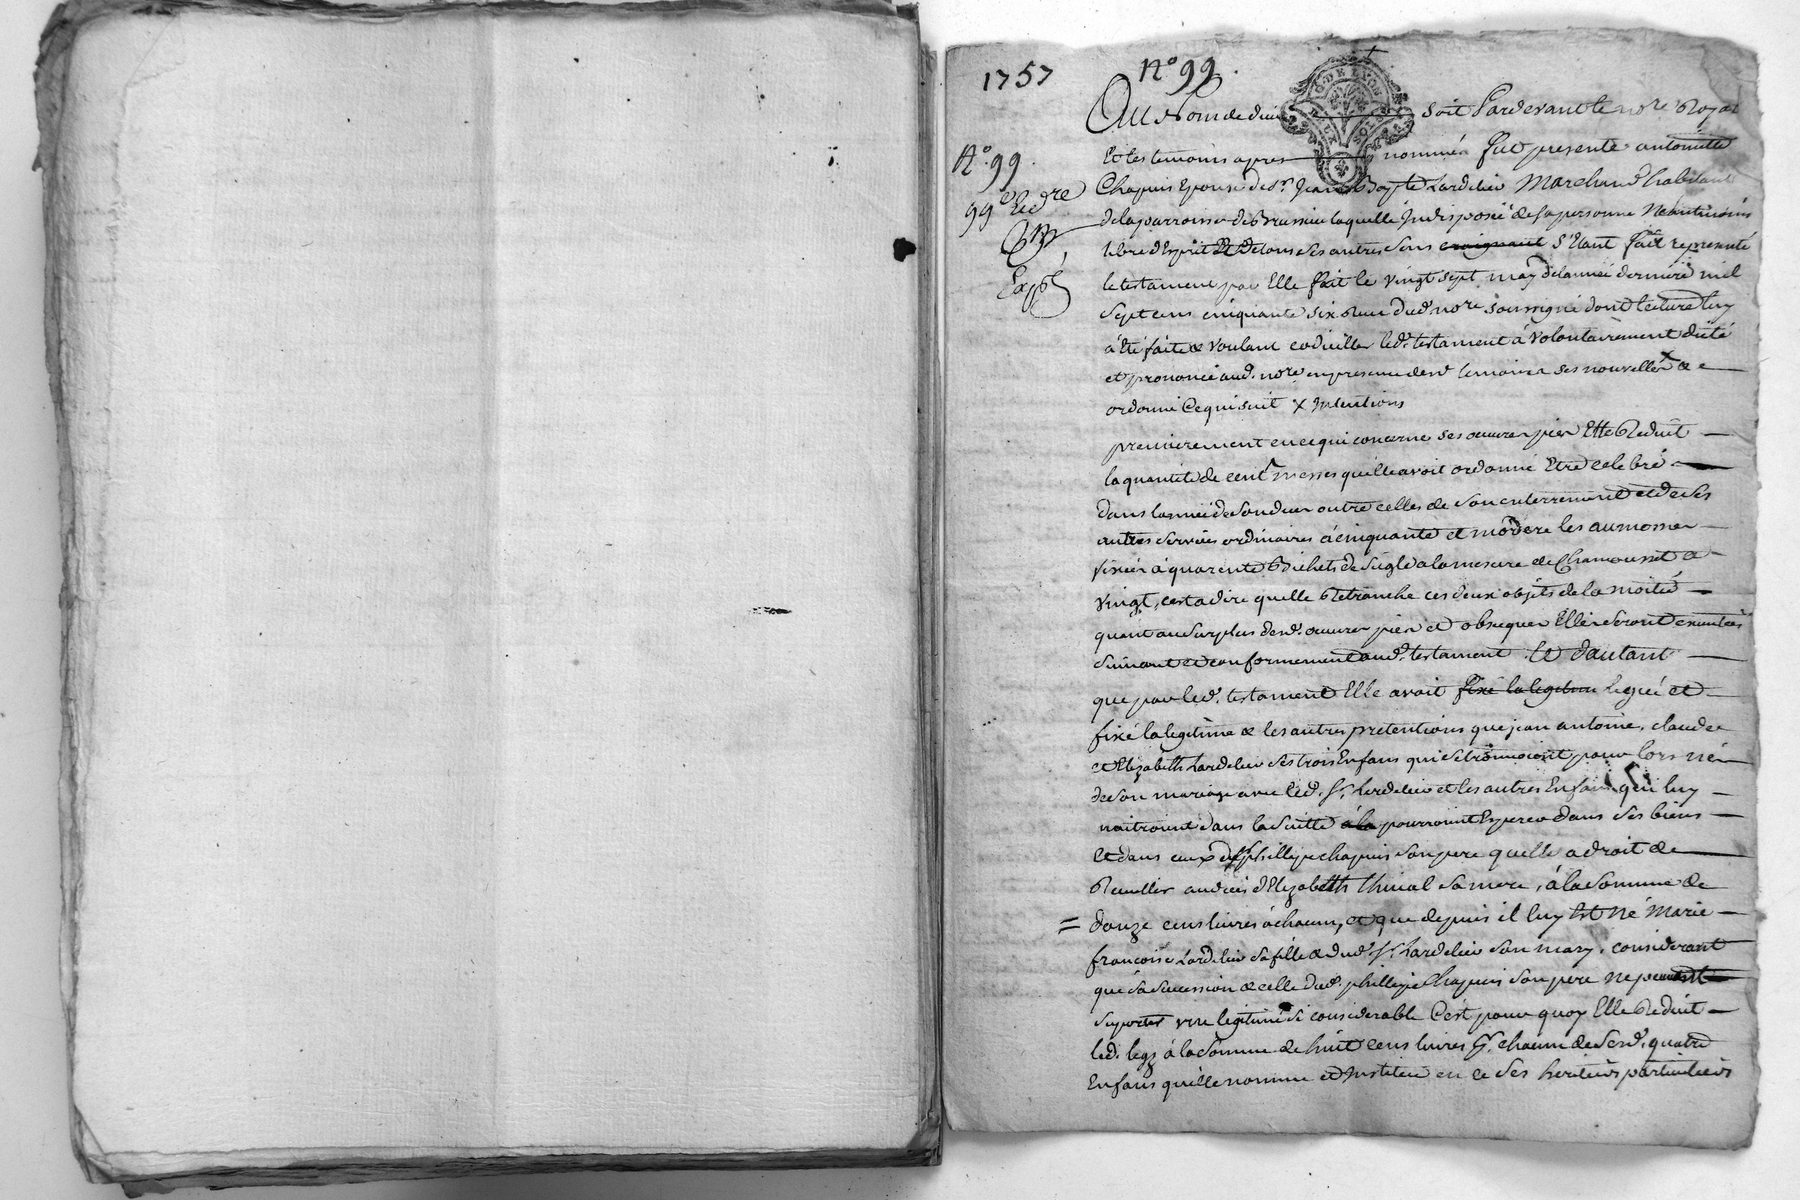 1757
N.° 99.
G. DE LYON
DEUX SOLS
N.° 99.
99.e
Exp.é
Au Nom de dieu soit Pardevant le no.re Royal
Et les temoins apres nommés fut presente antoinette
Chapuis Epouse de s.r Jean Bapte Lardelier Marchand habitant
de la parroisse de Brussieu laquelle Indisposée de sa personne Neantmoins
libre d'Esprit Et De tous ses autres sens craignant S'Etant fait representé
le testament par Elle fait le vingt sept may de lannée derniere mil
Sept cens cinquante six Receu dud. no.re soussigné dont lecture luy
a Eté faite & voulant codiciller led. testament à volontairement dicté
et prononcé aud. no.re en presence desd. temoins ses nouvelles x &
ordonné Ce qui suit x Intentions
premierement en ce qui concerne ses oeuvres pies Elle Reduit
la quantité de cent messes quelle avoit ordonné Etre celebré
dans lannée de son deces outre celles de son enterrement et de ses
autres services ordinaires à cinquante et modere les aumones
fixées à quarente Bichets de seigle a la mesure de Chamousset a
vingt, cest a dire quelle Retranche ces deux objets de la moitié
quant au surplus desd. oeuvres pies et obseques Elles seront executées
suivant et conformement aud. testament. Et dautant
que par led. testament Elle avoit fixé la legitime legué et
fixé la legitime & les autres pretentions que jean antoine, claude
et Elizabeth Lardelier ses trois Enfans qui se trouvoient pour lors nés
de son mariage avec led. S.r Lardelier et les autres Enfans qui luy
naitroient dans la suitte à la pourroient Esperer dans ses biens
Et dans ceux de phillipe chapuis son pere quelle a droit de
Recueillir au deces d'Elizabeth Thivial sa mere, à la somme de
= douze cens livres à chacun, et que depuis il luy Est Né Marie
francoise Lardelier sa fille & dud. S.r Lardelier son mary, considerant
que sa succession & celle dud. phillipe Chapuis son pere ne peuvent
suporter une legitime si considerable C'est pour quoy Elle Reduit
led. legs à la somme de huit cens livres p.r chacun de sesd. quatre
Enfans quelle nomme et Institue en ce ses heritiers particuliers